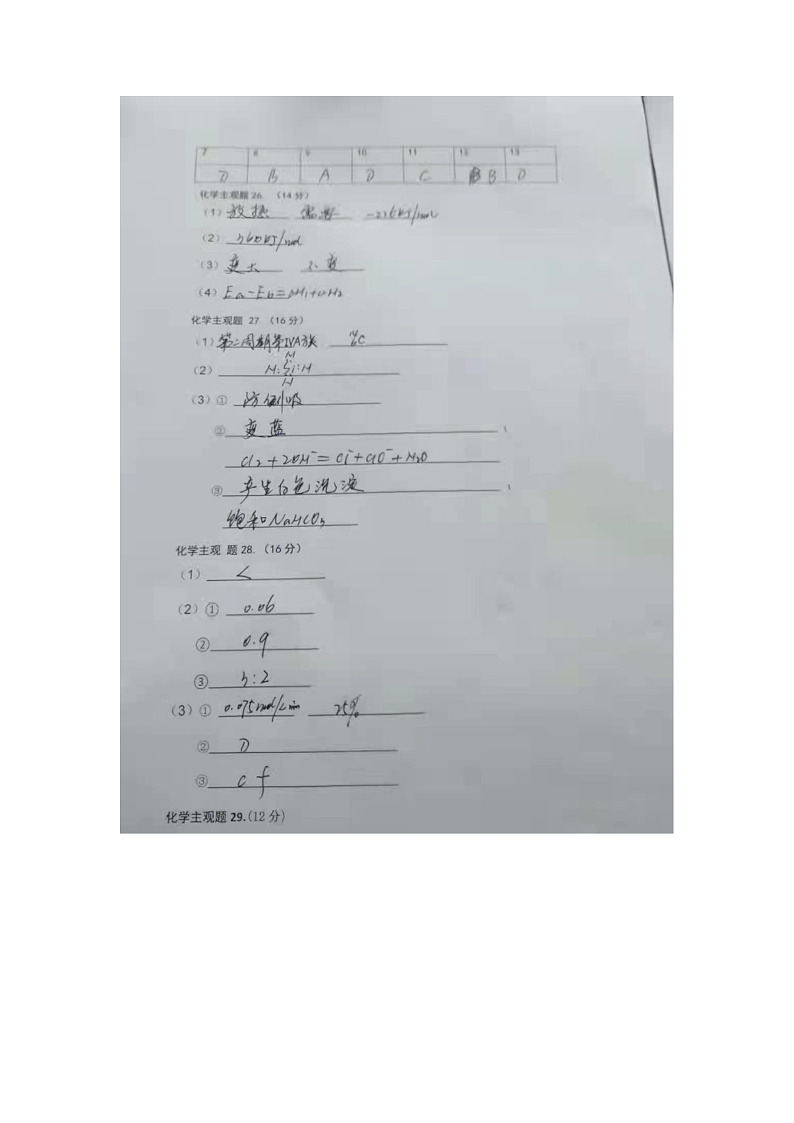 7 8 9 10 11 12 13
D B A D C B D
化学主观题 26. (14分)
(1) 放热 需要
(2) 360kJ/mol
(3) 变大 不变
(4) Ea-Eb=ΔH₁+ΔH₂
化学主观题 27 (16分)
(1) 第二周期第IVA族 ¹⁴₆C
(2) H:Si:H
(3)① 防倒吸
② 变蓝
Cl₂+2OH⁻=Cl⁻+ClO⁻+H₂O
③ 产生白色沉淀
饱和NaHCO₃
化学主观 题28. (16分)
(1) <
(2)① 0.06
② 0.9
③ 3:2
(3)① 0.075mol/L·min 25%
② D
③ c f
化学主观题 29.(12分)